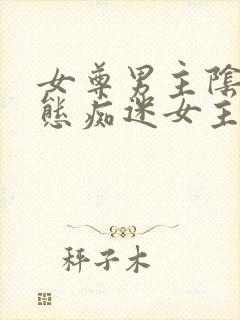 女尊男主陰
態痴迷女主
秤子木